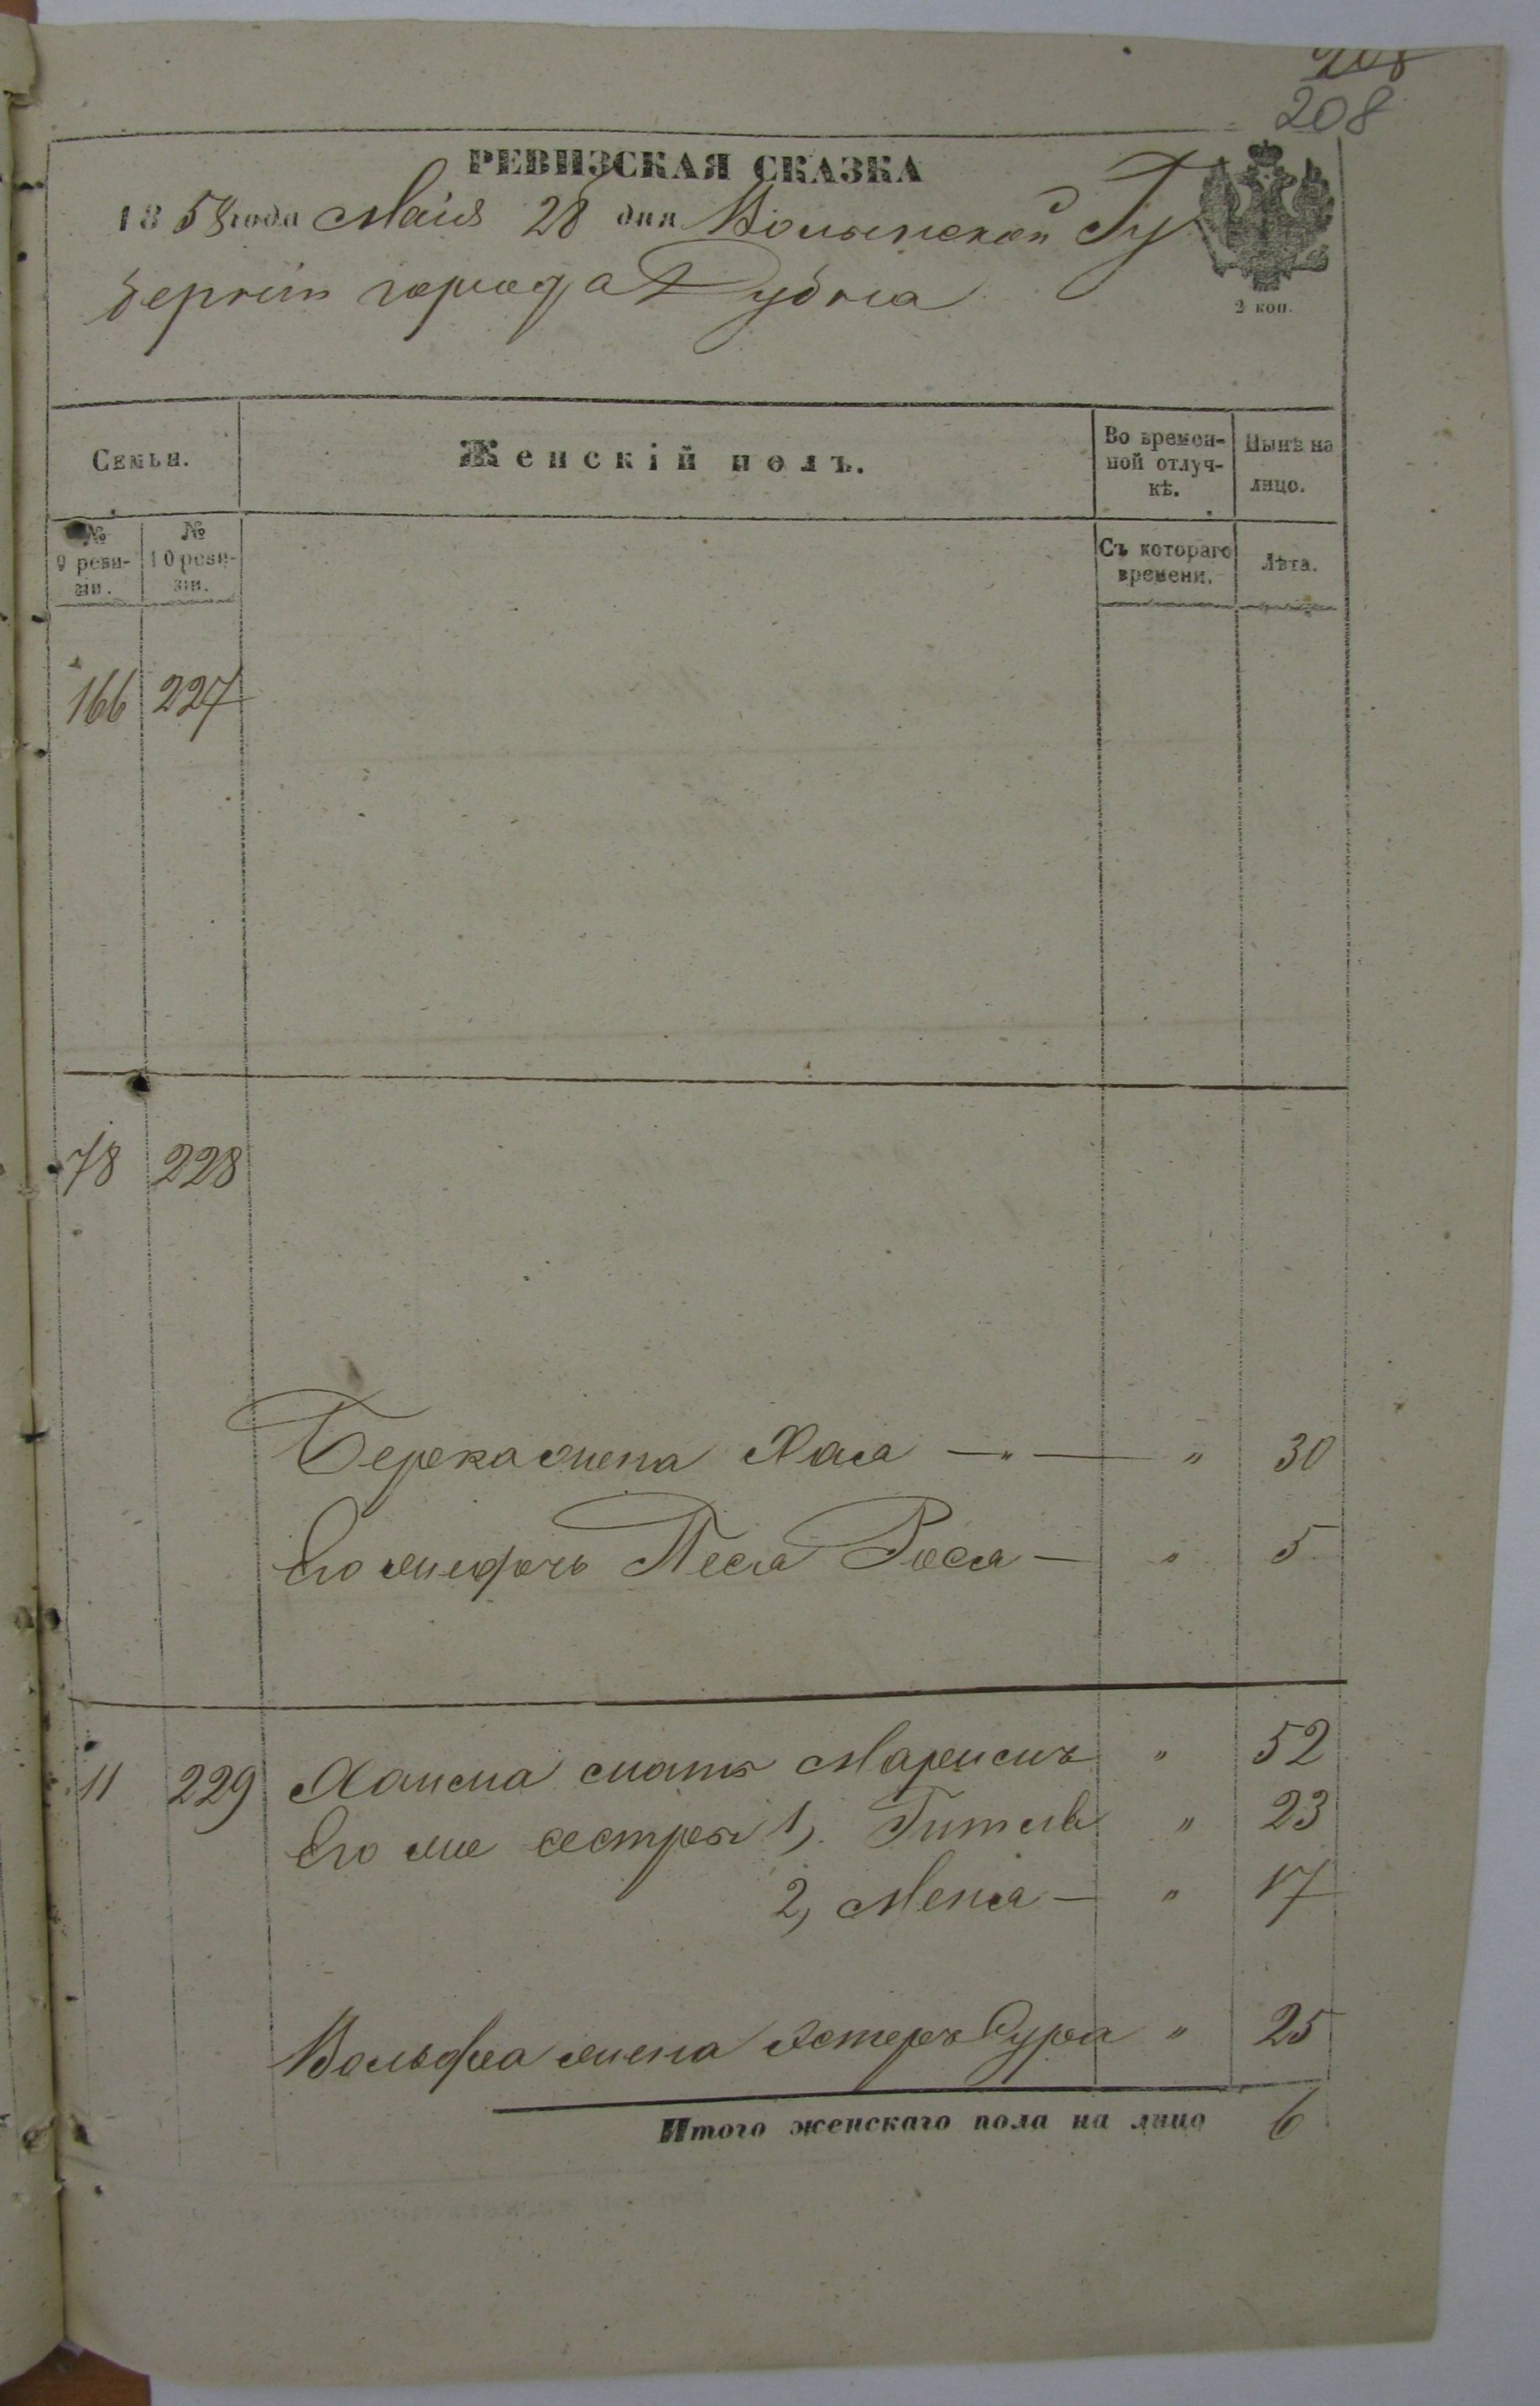 208
208
РЕВИЗСКАЯ СКАЗКА
1858 года Маія 28 дня Волынской Гу
берніи города Дубна
2 коп.
Семьи.
Женскій полъ.
Во времен-
ной отлуч-
кѣ.
Нынѣ на
лицо.
№
9 реви-
зіи.
№
10 реви-
зіи.
Съ котораго
времени.
Лѣта.
166 227
78 228
Берка жена Хая — " — " 30
Его же дочь Песя Рося — " 5
11 229 Хаима мать Маріимъ " 52
Его же сестры 1, Гитля " 23
2, Меня — " 17
Вольфа жена Эстеръ Сура " 25
Итого женскаго пола на лицо 6